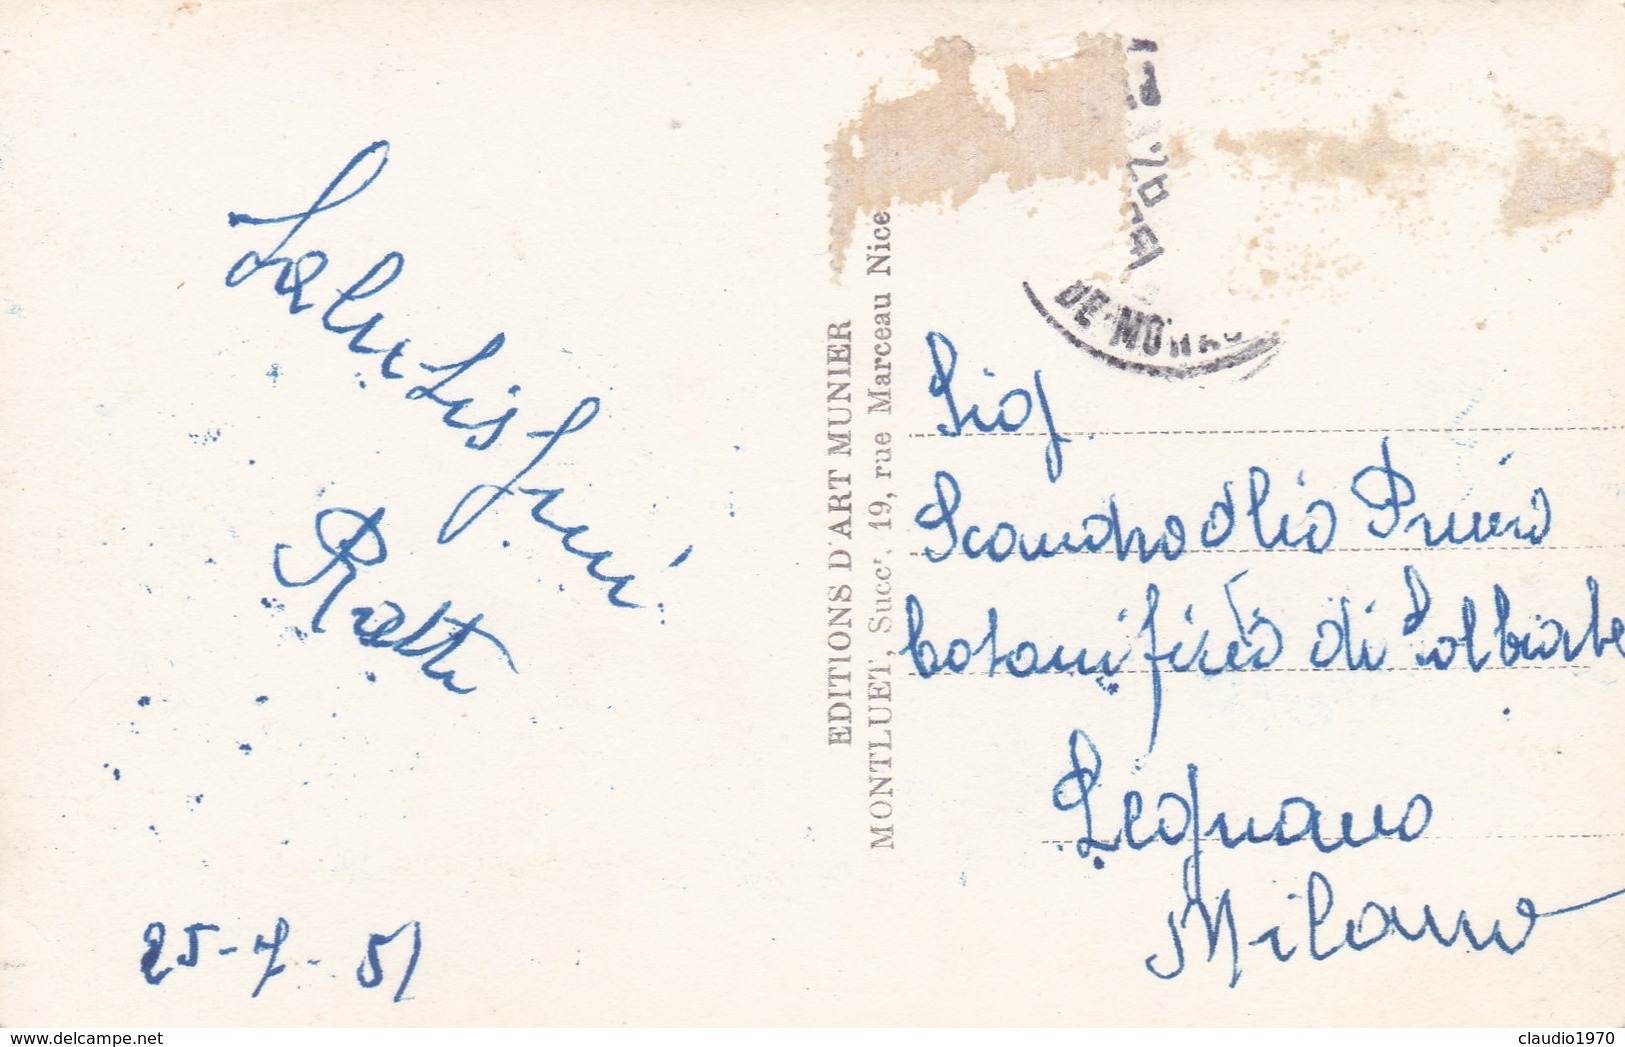 Salutissimi
Ratti
25-7-51
EDITIONS D'ART MUNIER
MONTLUET, Succr. 19, rue Marceau Nice
DE MONACO
Sig
Scandroglio Primo
cotonificio di Solbiate
Legnano
Milano
www.delcampe.net
claudio1970